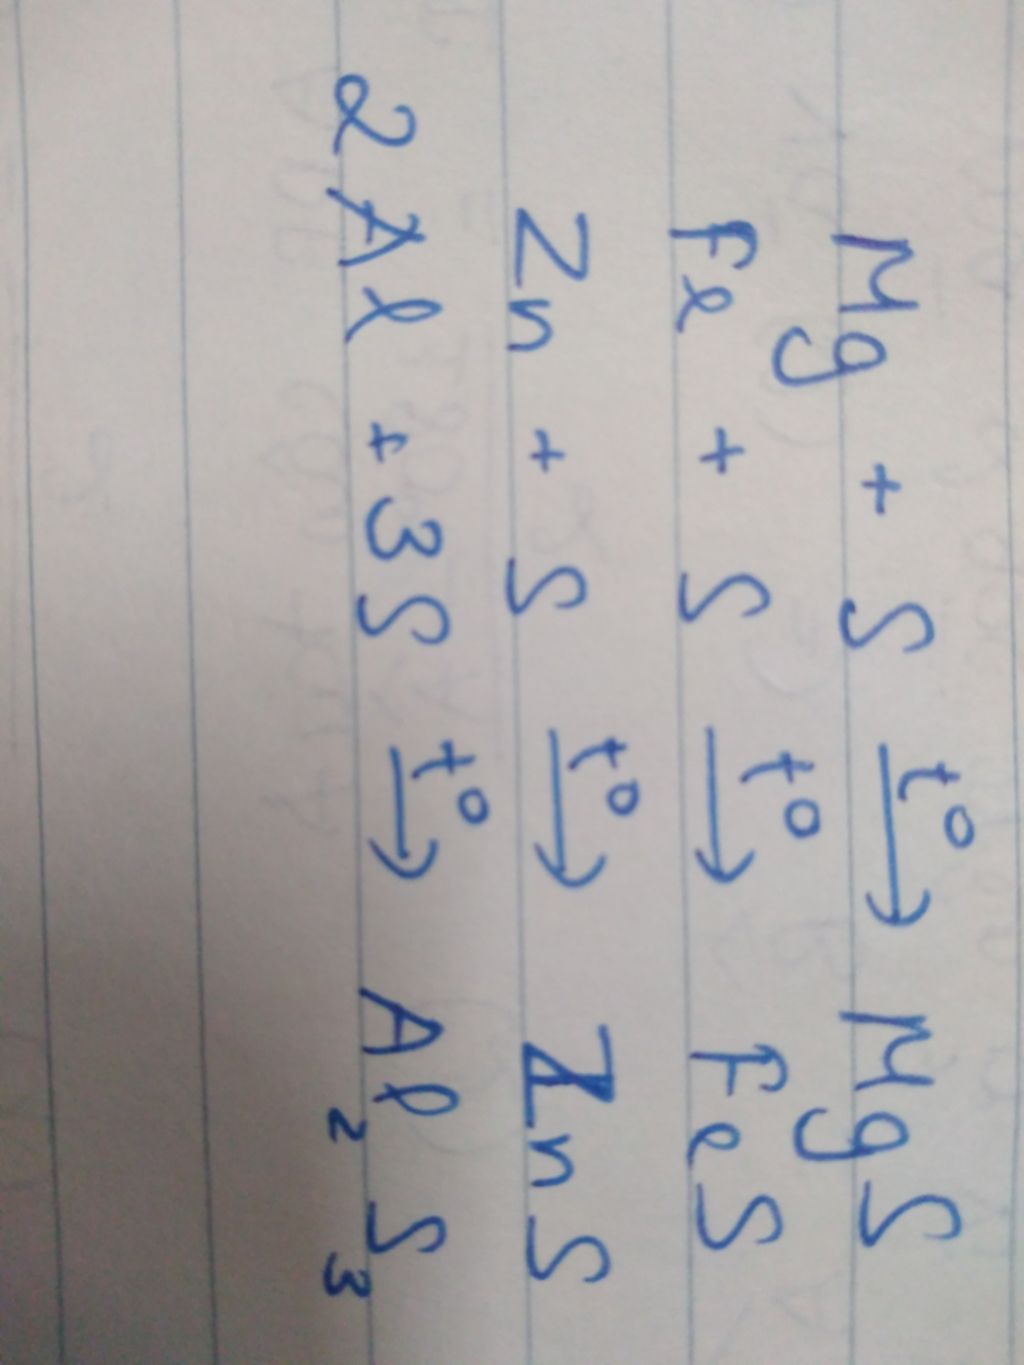 Mg + S t° → MgS
Fe + S t° → FeS
Zn + S t° → ZnS
2Al + 3S t° → Al₂S₃